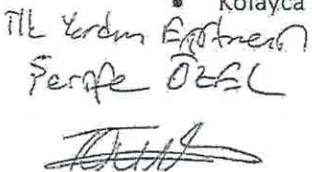 Kolayca
İlk Yardım Eğitmeni
Şerife ÖZEL